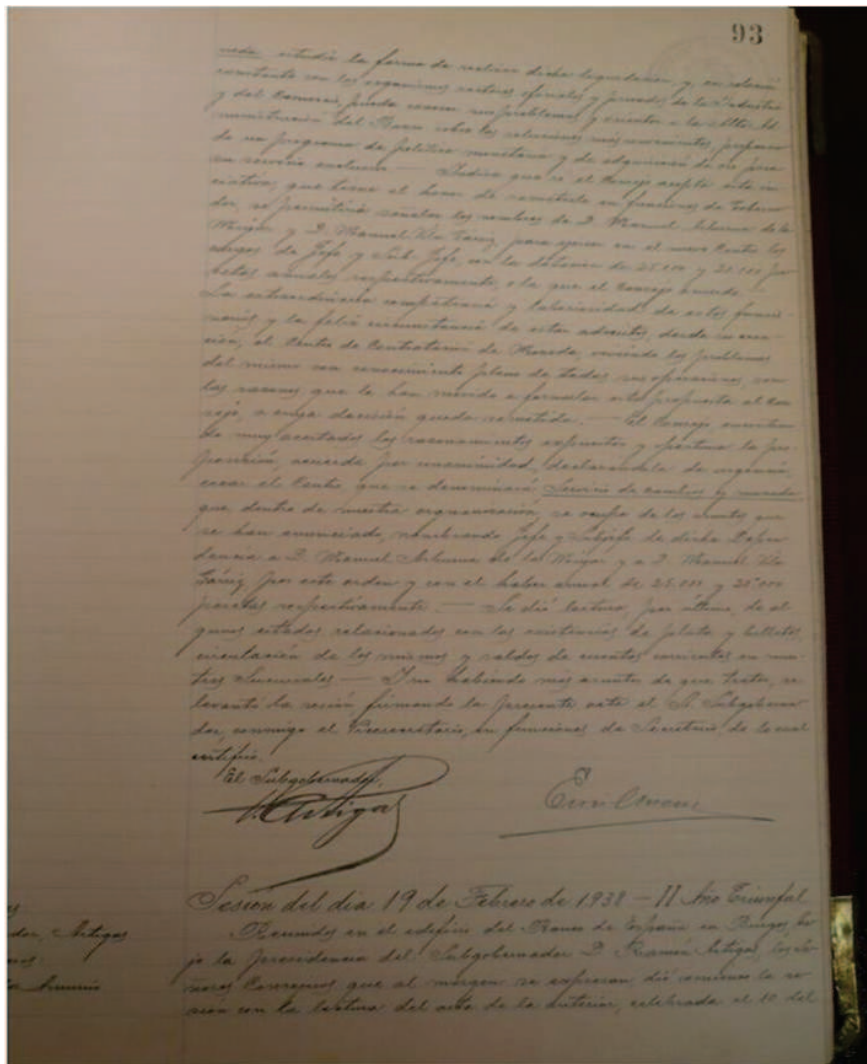 93
neda estudie la forma de realizar dicha liquidación y, en relación
constante con los organismos rectores oficiales y privados de la Industria
y del Comercio, pueda conocer sus problemas y orientar a la Alta Ad
ministración del Banco sobre las soluciones más convenientes,
de un programa de política monetaria y de adquisición de oro para
su reserva exclusiva — Indica que si el Consejo acepta esta ini
ciativa, que tiene el honor de someterle en funciones de Goberna
dor, se permitiría señalar los nombres de D. Manuel de la
y D. Manuel Vila para ejercer en el nuevo Centro los
cargos de Jefe y Sub-Jefe, con la dotación de 25.000 y 20.000 pe
setas anuales respectivamente, o la que el Consejo acuerde.—
La extraordinaria competencia y laboriosidad de estos funcio
narios y la feliz circunstancia de estar adscritos, desde su crea
ción, al Centro de Contratación de Moneda, viviendo los problemas
del mismo con conocimiento pleno de todas sus operaciones, son
las razones que le han movido a formular esta propuesta al Con
sejo, a cuya decisión queda sometida. — El Consejo
de muy acertados los razonamientos expuestos y oportuna la pro
posición, acuerda por unanimidad, declarándola de urgencia,
crear el Centro que se denominará Servicio de cambios y moneda
que dentro de nuestra organización, se ocupe de los asuntos que
se han enunciado, nombrando Jefe y Subjefe de dicha Depen
dencia a D. Manuel de la y a D. Manuel Vila
por este orden y con el haber anual de 25.000 y 20.000
pesetas respectivamente — Se dió lectura, por último, de al
gunos estados relacionados con las existencias de plata y billetes,
circulación de los mismos y saldos de cuentas corrientes en nues
tras Sucursales — Y no habiendo más asuntos de que tratar, se
levantó la sesión firmando la presente acta el Sr. Subgoberna
dor, conmigo el Vicesecretario, en funciones de Secretario, de lo cual
certifico.
El Subgobernador,
Artigas
Sesión del día 19 de Febrero de 1938 — II Año Triunfal
Reunidos en el edificio del Banco de España en Burgos, ba
jo la presidencia del Subgobernador D. Ramón Artigas, los Se
ñores Consejeros que al margen se expresan dió comienzo la se
sión con la lectura del acta de la anterior, celebrada el 10 del
dor, Artigas